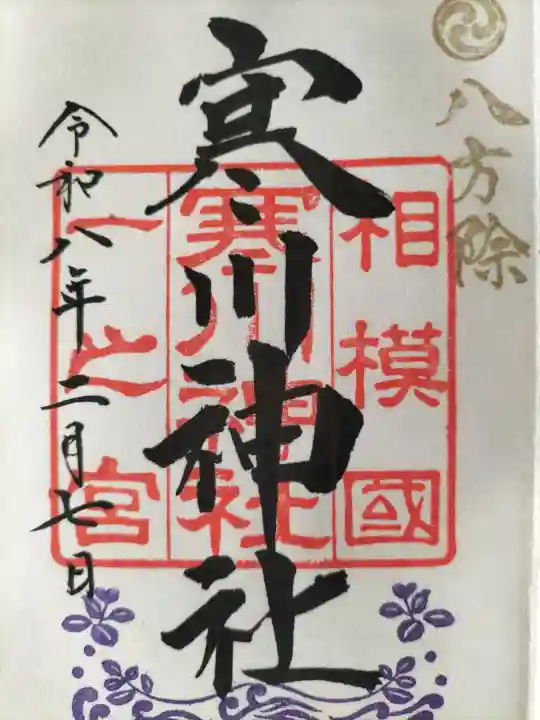 八方除
相模國
寒川神社
一之宮
寒川神社
令和八年二月七日